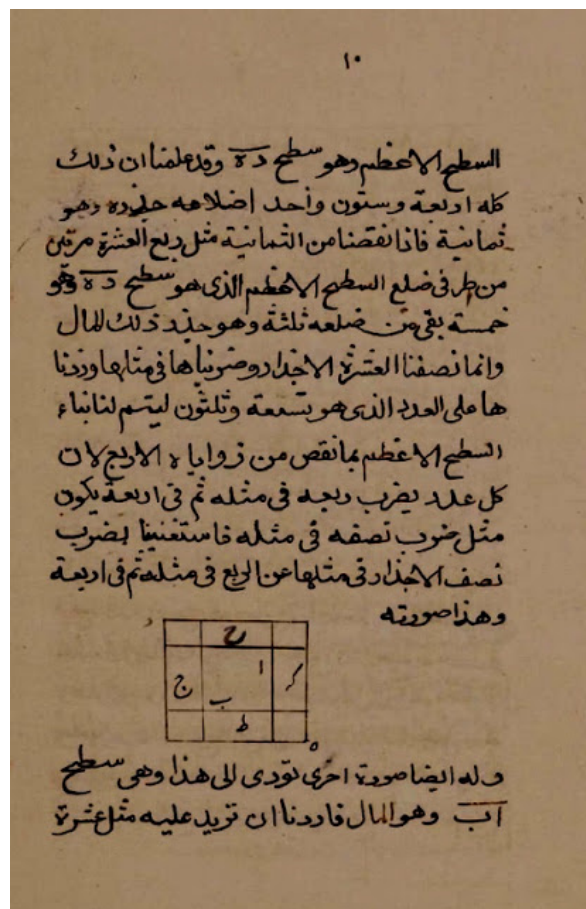 ١٠
السطح الاعظم وهو سطح ده وقد علمنا ان ذلك
كله اربعة وستون واحد اضلاعه جذره وهو
ثمانية فاذا نقصنا من الثمانية مثل ربع العشرة مرتين
من طرفى ضلع السطح الاعظم الذى هو سطح ده وهو
خمسة بقى من ضلعه ثلثة وهو جذر ذلك المال
وانما نصفنا العشرة الاجذار وضربناها فى مثلها وزدنا
ها على العدد الذى هو تسعة وثلثون ليتم لنا بناء
السطح الاعظم بما نقص من زواياه الاربع لان
كل عدد يضرب ربعه فى مثله ثم فى اربعة يكون
مثل ضرب نصفه فى مثله فاستغنينا بضرب
نصف الاجذار فى مثلها عن الربع فى مثله ثم فى اربعة
وهذا صورته
د
ح
ا
ك
ج
ب
ط
ه
وله ايضا صورة اخرى تودى الى هذا وهى سطح
اب وهو المال فاردنا ان نزيد عليه مثل عشرة